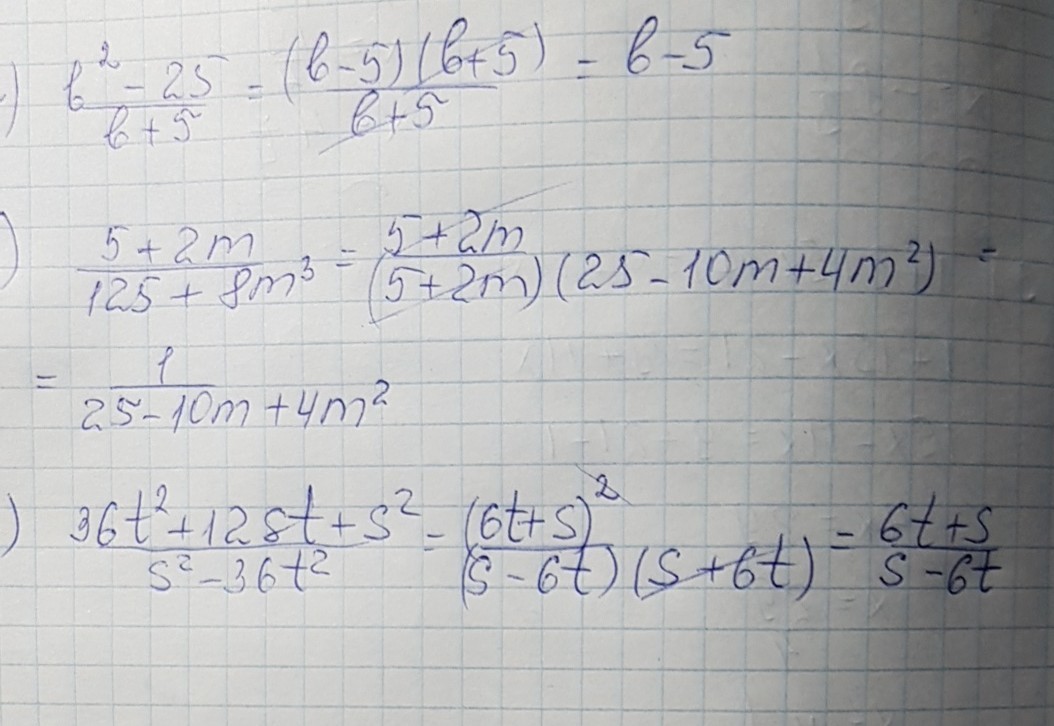 ) (b² - 25)/(b + 5) = ((b - 5)(b + 5))/(b + 5) = b - 5
) (5 + 2m)/(125 + 8m³) = (5 + 2m)/((5 + 2m)(25 - 10m + 4m²)) =
= 1/(25 - 10m + 4m²)
) (36t² + 12st + s²)/(s² - 36t²) = (6t + s)²/((s - 6t)(s + 6t)) = (6t + s)/(s - 6t)